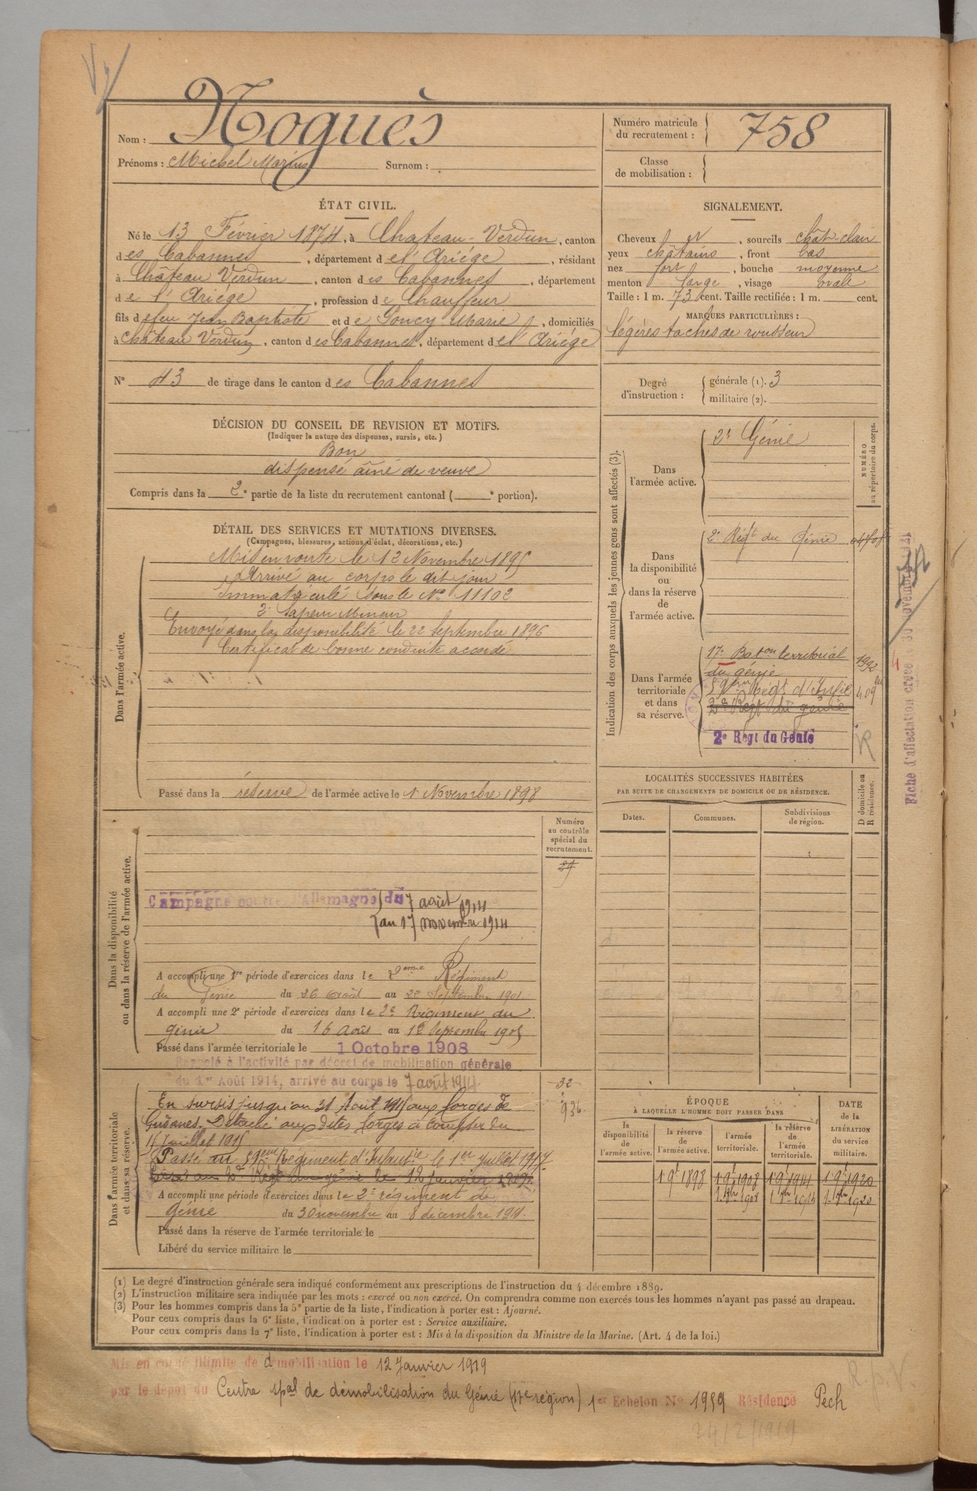 Nom : Noguès
Prénoms : Michel Marius Surnom :
Numéro matricule
du recrutement : 758
Classe
de mobilisation :
ÉTAT CIVIL.
Né le 13 Février 1874, à Chateau-Verdun, canton
des Cabannes, département de l'Ariége, résidant
à Château Verdun, canton des Cabannes, département
de l'Ariège, profession de Chauffeur
fils de feu Jean Baptiste et de Goucy Marie, domiciliés
à Château Verdun, canton des Cabannes, département de l'Ariége
N° 43 de tirage dans le canton des Cabannes
SIGNALEMENT.
Cheveux et, sourcils chât. clair
yeux châtains, front bas
nez fort, bouche moyenne
menton large, visage ovale
Taille : 1 m. 73 cent. Taille rectifiée : 1 m. cent.
MARQUES PARTICULIÈRES :
légères taches de rousseur
Degré
d'instruction :
générale (1). 3
militaire (2).
DÉCISION DU CONSEIL DE REVISION ET MOTIFS.
(Indiquer la nature des dispenses, sursis, etc.)
Bon
dispensé aîné de veuve
Compris dans la 2e partie de la liste du recrutement cantonal ( e portion).
DÉTAIL DES SERVICES ET MUTATIONS DIVERSES.
(Campagnes, blessures, actions d'éclat, décorations, etc.)
Dans l'armée active.
Mis en route le 12 Novembre 1895
Arrivé au corps le dit jour
Immatriculé sous le No 11102
2e Sapeur Mineur
Envoyé dans la disponibilité le 22 Septembre 1896
Certificat de bonne conduite accordé
Passé dans la réserve de l'armée active le 1 Novembre 1898
Indication des corps auxquels les jeunes gens sont affectés (3).
NUMÉRO
au répertoire du corps.
Dans
l'armée active.
2e Génie
Dans
la disponibilité
ou
dans la réserve
de
l'armée active.
2e Régt du Génie
Dans l'armée
territoriale
et dans
sa réserve.
17e Baton territorial
du génie 1992
59eme Régt d'Infie 409
2e Régt du génie
2e Régt du Génie
Fiche d'affectation créée
LOCALITÉS SUCCESSIVES HABITÉES
PAR SUITE DE CHANGEMENTS DE DOMICILE OU DE RÉSIDENCE.
D domicile ou
R résidence.
Dates.
Communes.
Subdivisions
de région.
Dans la disponibilité
ou dans la réserve de l'armée active.
Numéro
au contrôle
spécial du
recrutement.
Campagne contre l'Allemagne du 7 août 1914
au 17 novembre 1914
A accompli une 1re période d'exercices dans le 2eme Régiment
du Génie du 26 août au 22 Septembre 1901
A accompli une 2e période d'exercices dans le 2e Régiment du
génie du 16 Août au 12 Septembre 1905
Passé dans l'armée territoriale le 1 Octobre 1908
Rappelé à l'activité par décret de mobilisation générale
du 1er Août 1914, arrivé au corps le 7 août 1914
32
936
Dans l'armée territoriale
et dans sa réserve.
En sursis jusqu'au 31 Août 1915 aux forges de
Gudanes. Détaché aux dites forges à compter du
15 juillet 1915
Passé au 59eme Régiment d'Infantie le 1er juillet 1917
A accompli une période d'exercices dans le 2e régiment de
Génie du 30 novembre au 8 décembre 191
Passé dans la réserve de l'armée territoriale le
Libéré du service militaire le
ÉPOQUE
À LAQUELLE L'HOMME DOIT PASSER DANS
DATE
de la
LIBÉRATION
du service
militaire.
la
disponibilité
de
l'armée active.
la réserve
de
l'armée active.
l'armée
territoriale.
la réserve
de
l'armée
territoriale.
1 9e 1898 1 9e 1908 1 9e 1914 1 9e 1920
(1) Le degré d'instruction générale sera indiqué conformément aux prescriptions de l'instruction du 4 décembre 1889.
(2) L'instruction militaire sera indiquée par les mots : exercé ou non exercé. On comprendra comme non exercés tous les hommes n'ayant pas passé au drapeau.
(3) Pour les hommes compris dans la 5e partie de la liste, l'indication à porter est : Ajourné.
Pour ceux compris dans la 6e liste, l'indication à porter est : Service auxiliaire.
Pour ceux compris dans la 7e liste, l'indication à porter est : Mis à la disposition du Ministre de la Marine. (Art. 4 de la loi.)
Mis en congé illimité de démobilisation le 12 Janvier 1919
par le dépôt du Centre spal de démobilisation du Génie (17e région) 1er Echelon No 1959 Résidence Pech
24/2/1919